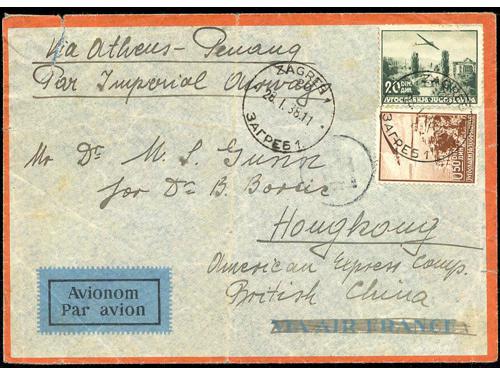 Via Athens - Penang
Par Imperial Airways
ZAGREB 1
26.I.36.11
ЗАГРЕБ 1
20 DIN.
ДИН.
ЈУГОСЛАВИЈА JUGOSLAVIJA
ZAGREB
ЗАГРЕБ 1
0.50 DIN.
Mr Dr. M. S. Gunn
for Dr. B. Borić
Hongkong
American Express Comp.
British China
Avionom
Par avion
VIA AIR FRANCE